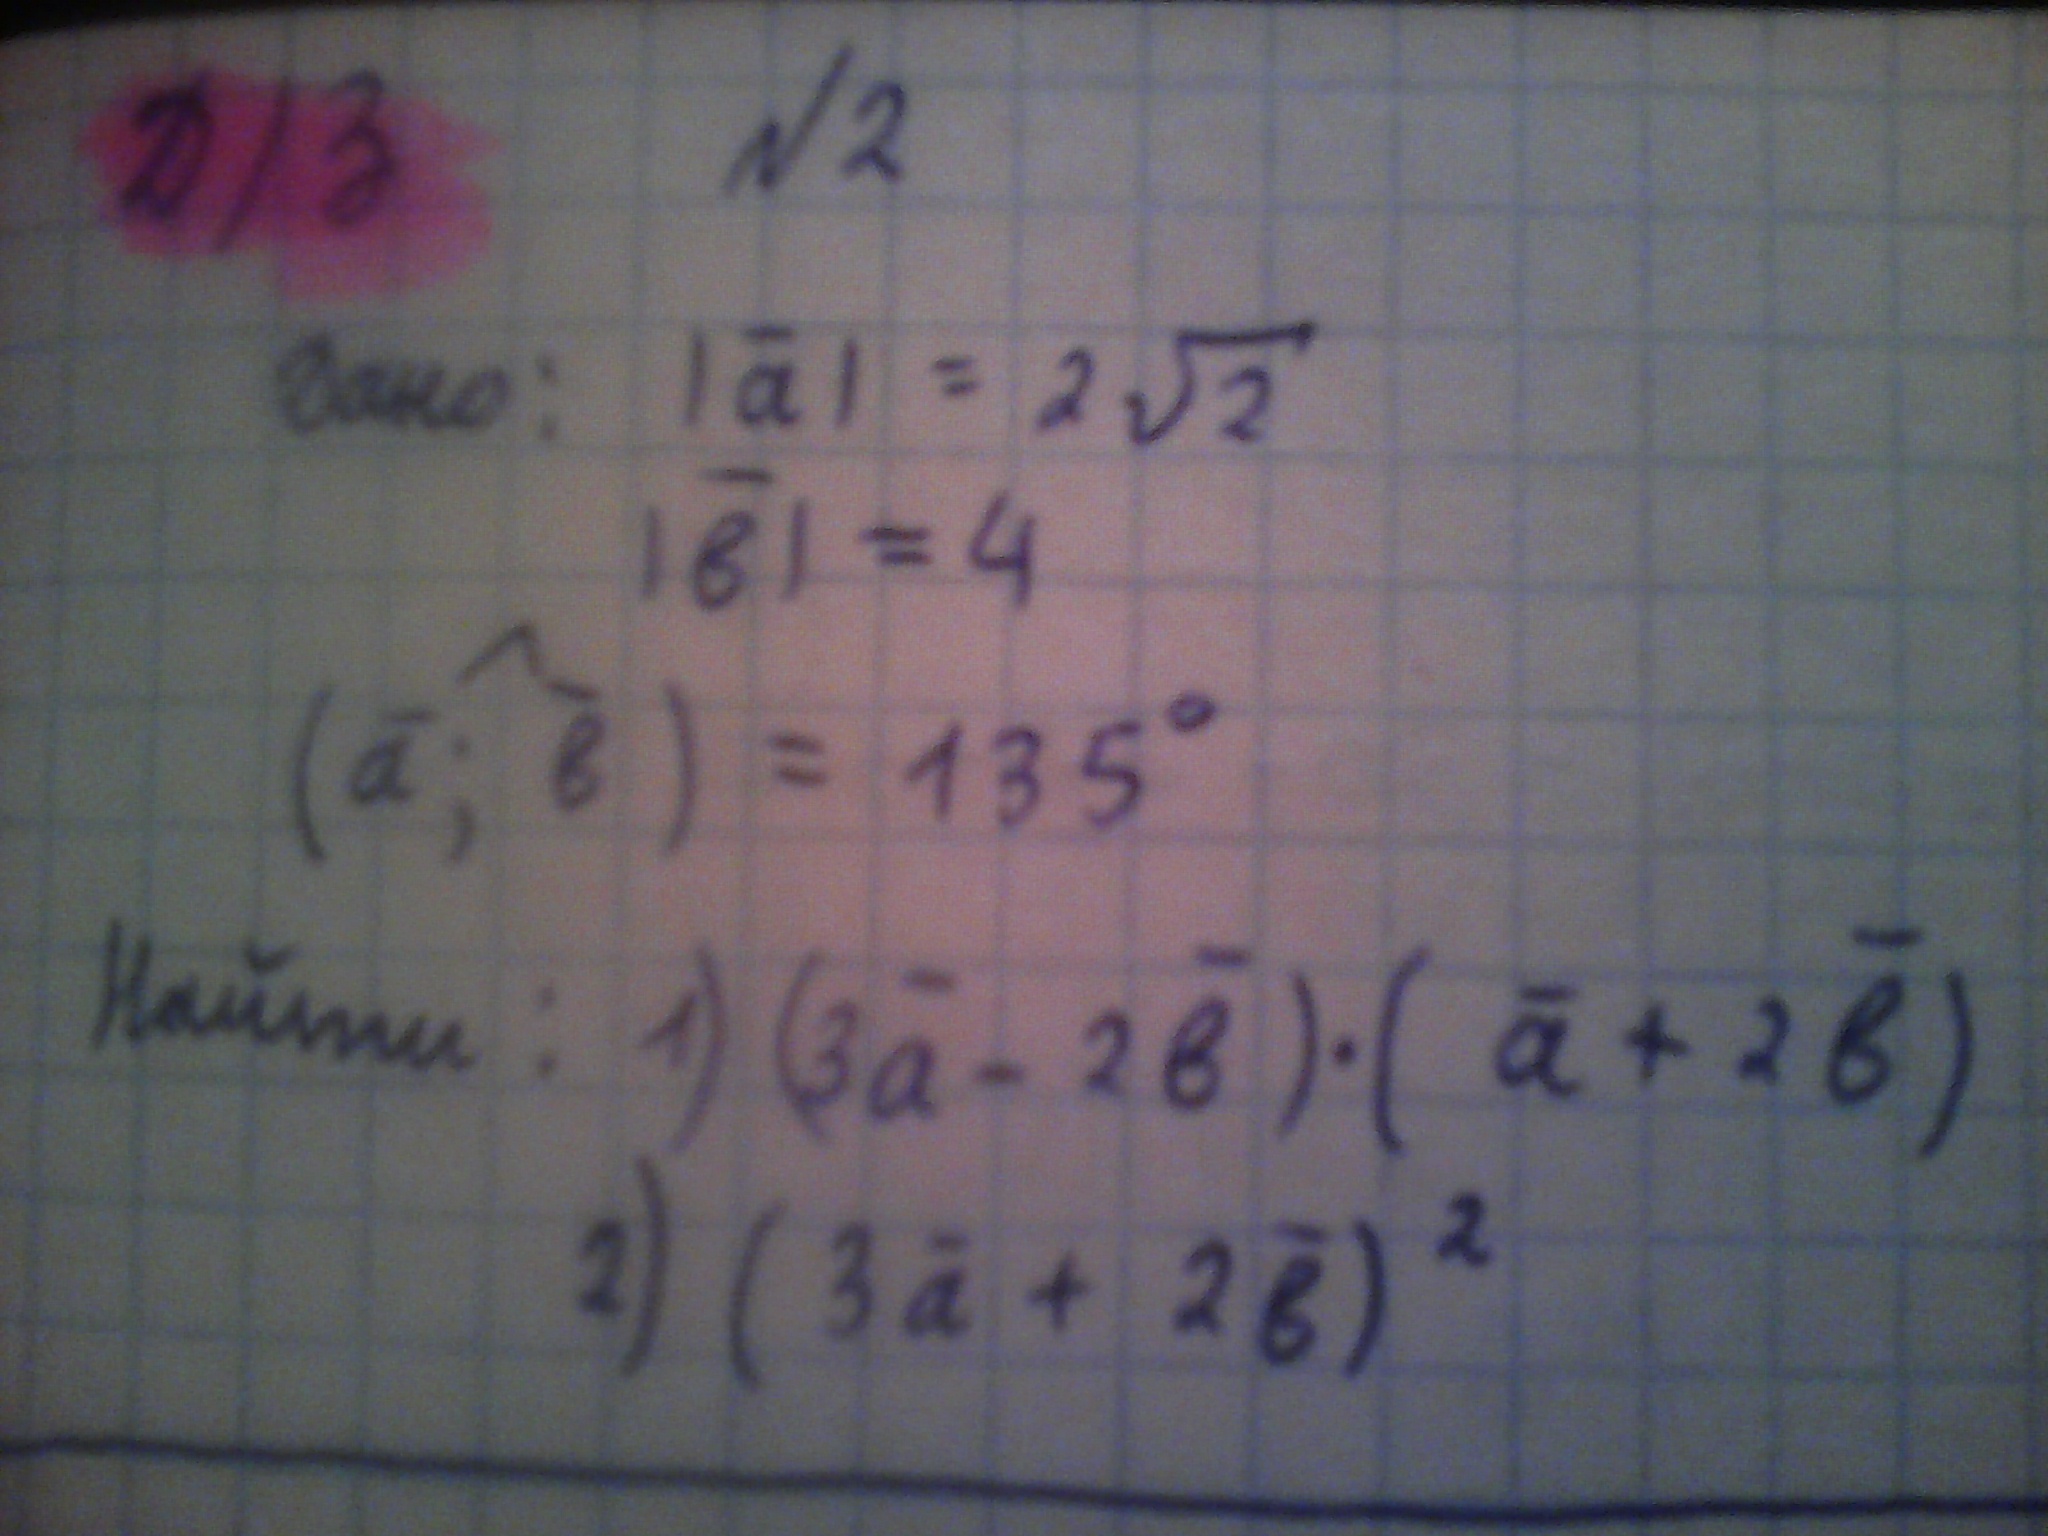 Д/З №2
Дано: |a̅| = 2√2
|в̅| = 4
(a̅; ^ в̅) = 135°
Найти: 1) (3a̅ - 2в̅)·(a̅ + 2в̅)
2) (3a̅ + 2в̅)²